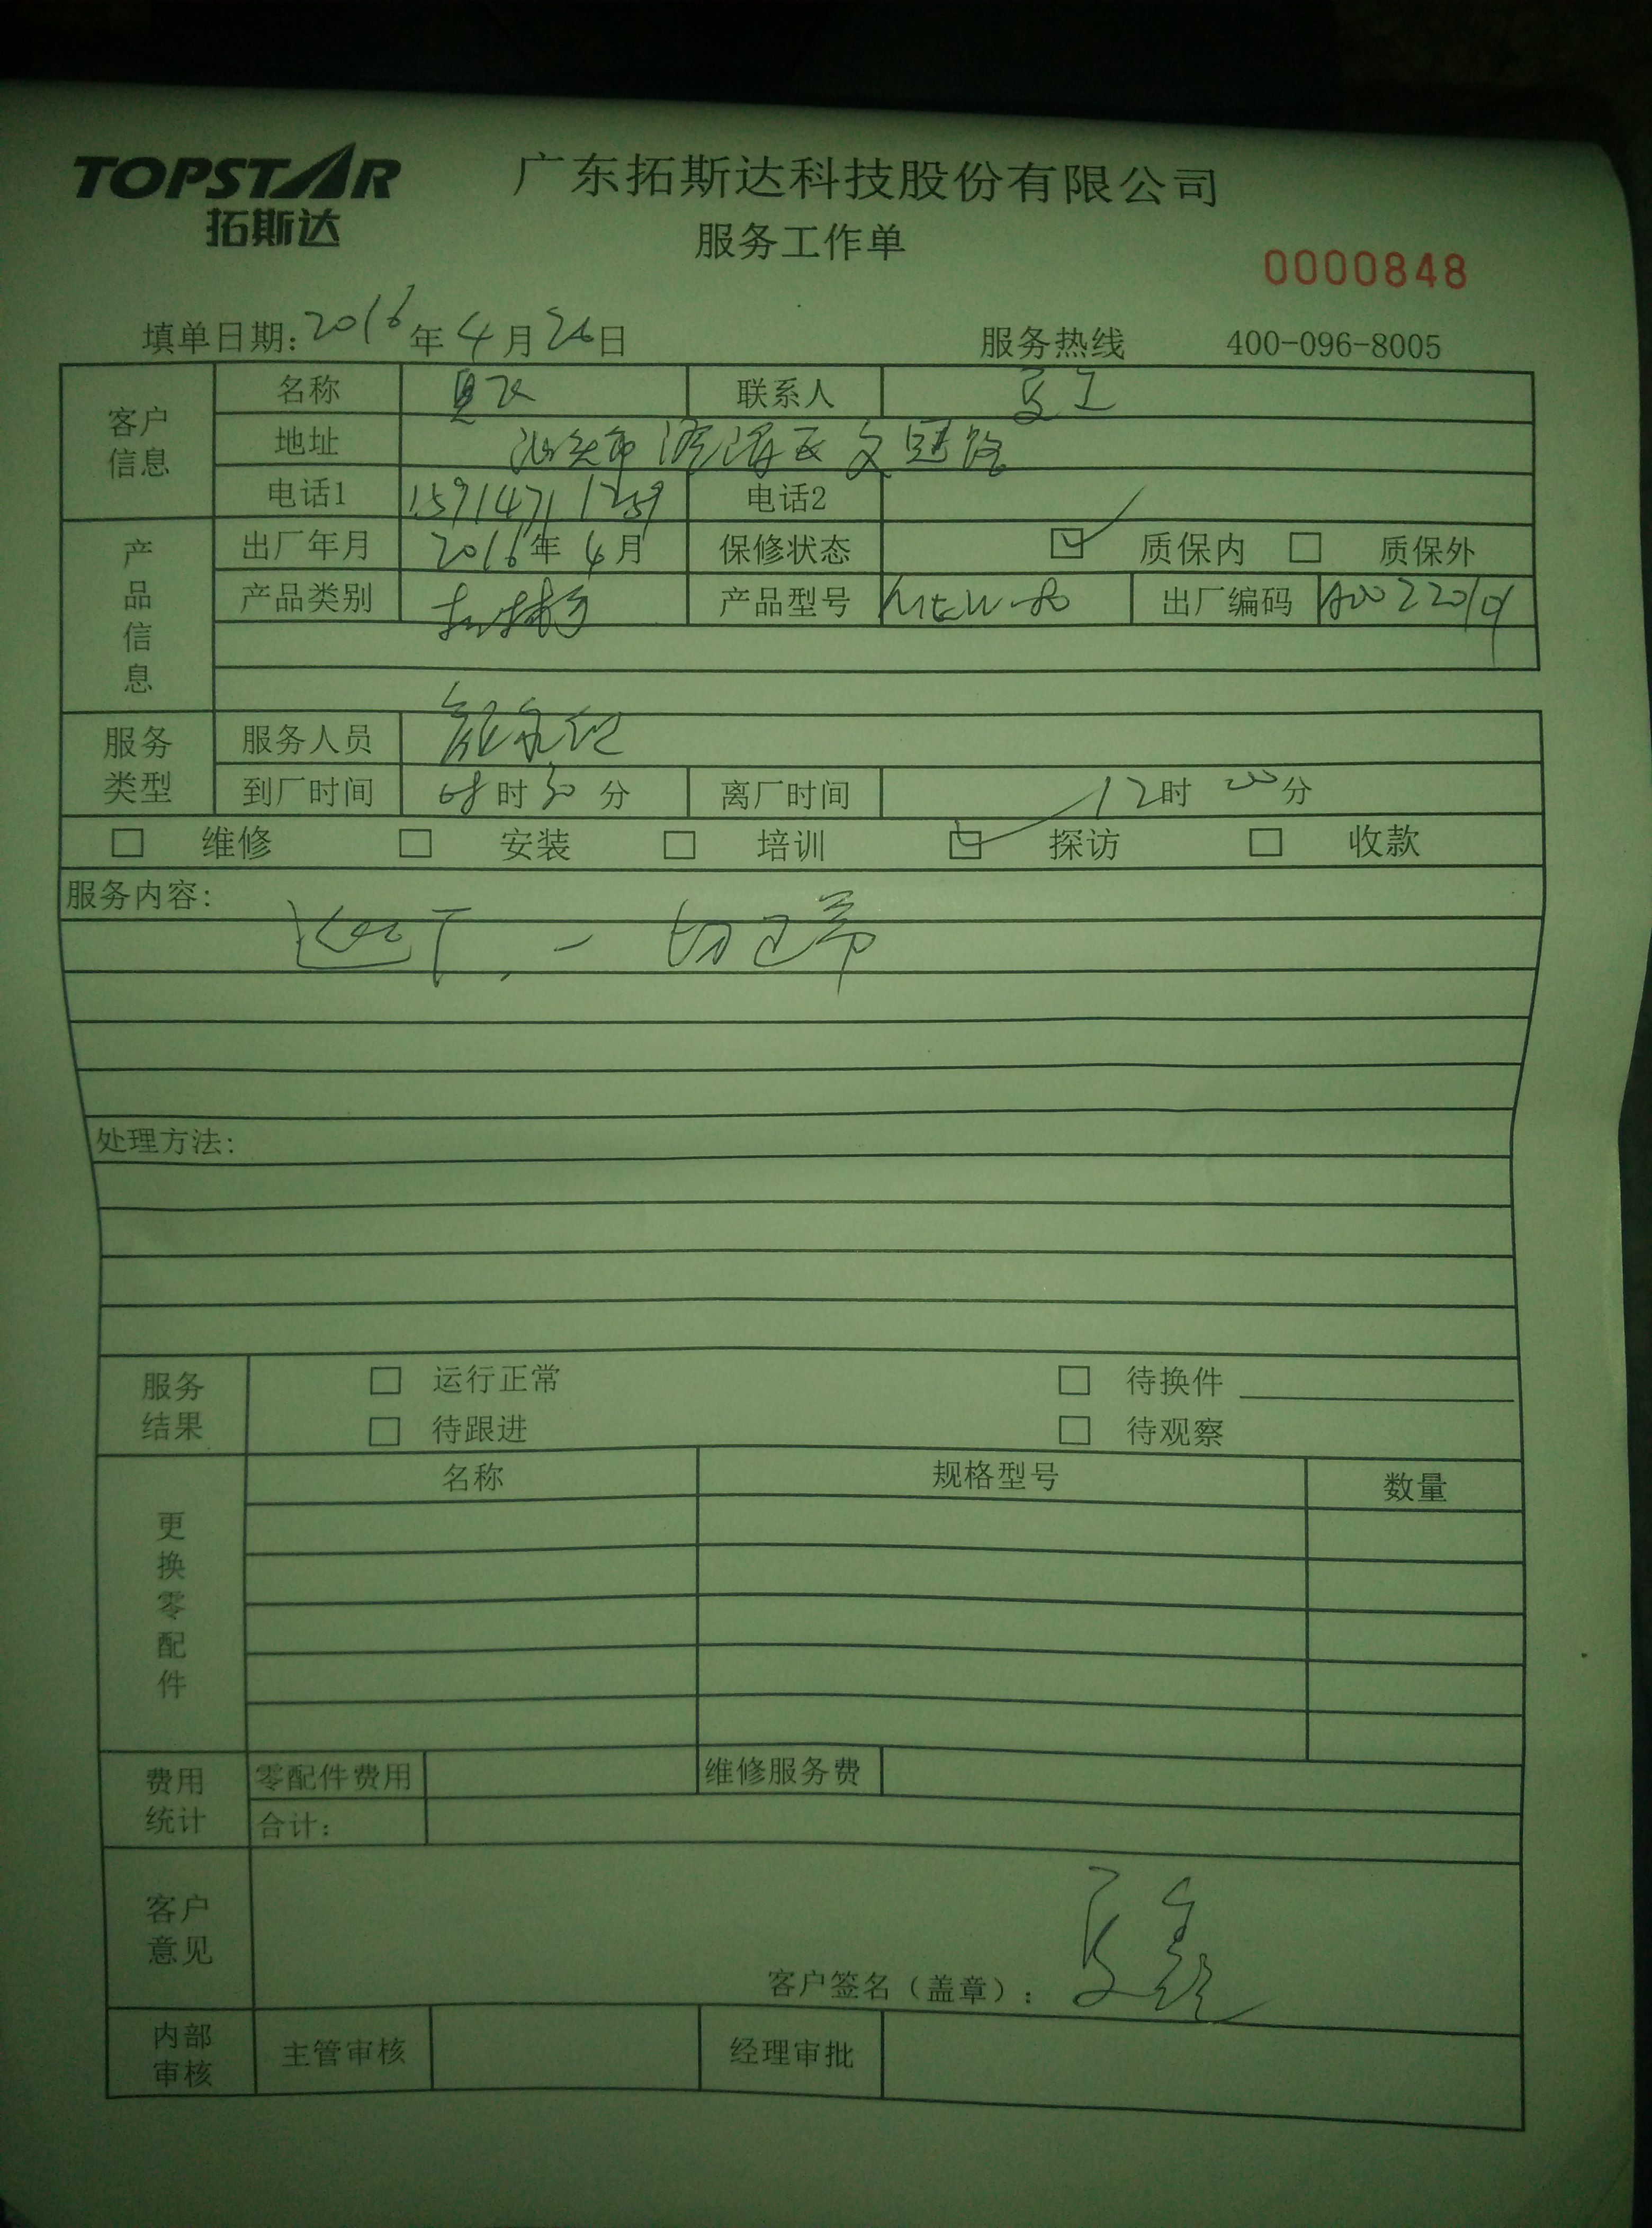 TOPSTAR
拓斯达
广东拓斯达科技股份有限公司
服务工作单
0000848
填单日期:2016年4月26日 服务热线 400-096-8005
客户信息
名称 联系人
地址 汕头市澄海区文冠路
电话1 15914711259 电话2
产品信息
出厂年月 2016年4月 保修状态 质保内 质保外
产品类别 机械手 产品型号 出厂编码
服务类型
服务人员
到厂时间 08时30分 离厂时间 12时00分
维修 安装 培训 探访 收款
服务内容:
一切正常
处理方法:
服务结果
运行正常 待换件
待跟进 待观察
更换零配件
名称 规格型号 数量
费用统计
零配件费用 维修服务费
合计:
客户意见
客户签名(盖章):
内部审核
主管审核 经理审批